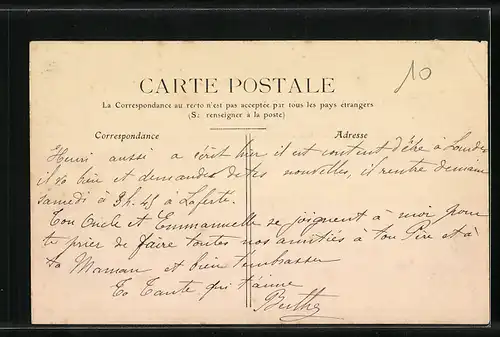 10
CARTE POSTALE
La Correspondance au recto n'est pas acceptée par tous les pays étrangers
(Se renseigner à la poste)
Correspondance
Adresse
Henri aussi a écrit hier il est content d'être à Londres
il va bien et demande de tes nouvelles, il rentre demain
samedi à 3h.45 à Laferté.
Ton Oncle et Emmanuelle se joignent à moi pour
te prier de faire toutes nos amitiés à ton Père et à
ta Maman et bien t'embrasser
Ta Tante qui t'aime
Berthe